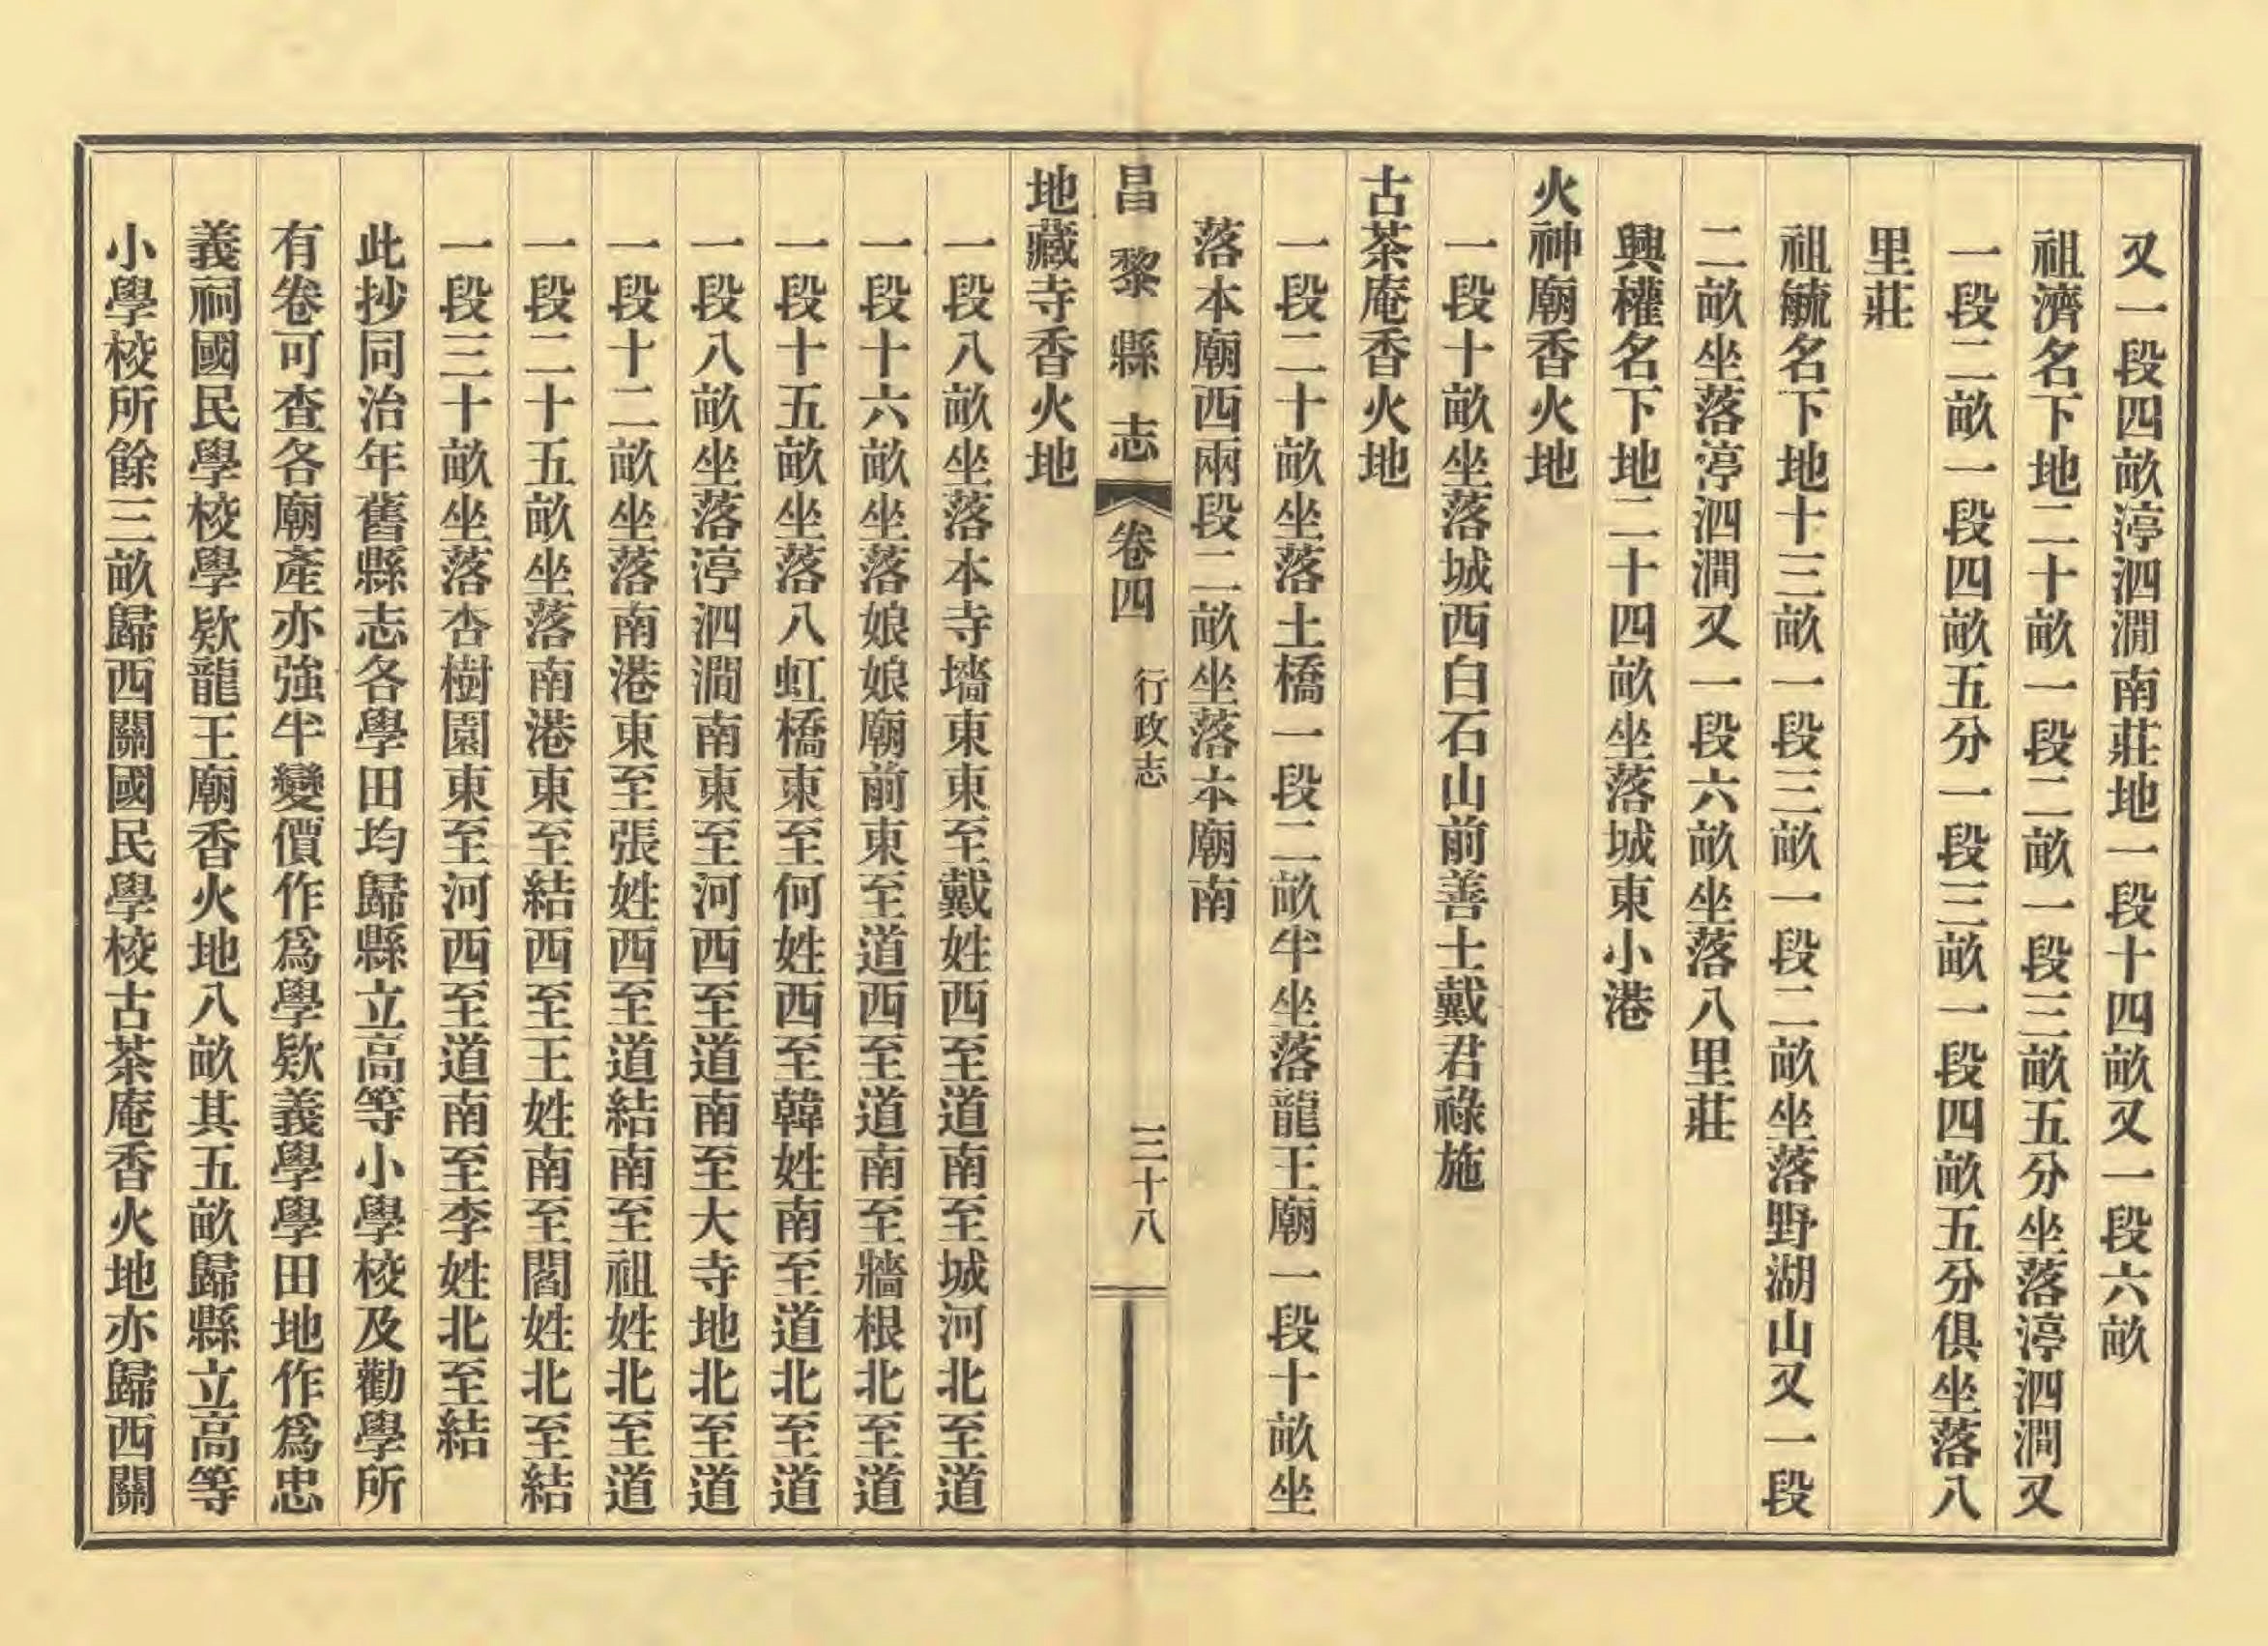 又一段四畝渟泗澗南莊地一段十四畝又一段六畝
祖濟名下地二十畝一段二畝一段三畝五分坐落渟泗澗又
一段二畝一段四畝五分一段三畝一段四畝五分俱坐落八
里莊
祖毓名下地十三畝一段三畝一段二畝坐落野湖山又一段
二畝坐落渟泗澗又一段六畝坐落八里莊
興權名下地二十四畝坐落城東小港
火神廟香火地
一段十畝坐落城西白石山前善士戴君祿施
古茶庵香火地
一段二十畝坐落土橋一段二畝半坐落龍王廟一段十畝坐
落本廟西兩段二畝坐落本廟南
昌黎縣志 卷四 行政志 三十八
地藏寺香火地
一段八畝坐落本寺墻東東至戴姓西至道南至城河北至道
一段十六畝坐落娘娘廟前東至道西至道南至牆根北至道
一段十五畝坐落八虹橋東至何姓西至韓姓南至道北至道
一段八畝坐落渟泗澗南東至河西至道南至大寺地北至道
一段十二畝坐落南港東至張姓西至道結南至祖姓北至道
一段二十五畝坐落南港東至結西至王姓南至閻姓北至結
一段三十畝坐落杏樹園東至河西至道南至李姓北至結
此抄同治年舊縣志各學田均歸縣立高等小學校及勸學所
有卷可查各廟產亦強半變價作爲學欵義學學田地作爲忠
義祠國民學校學欵龍王廟香火地八畝其五畝歸縣立高等
小學校所餘三畝歸西關國民學校古茶庵香火地亦歸西關